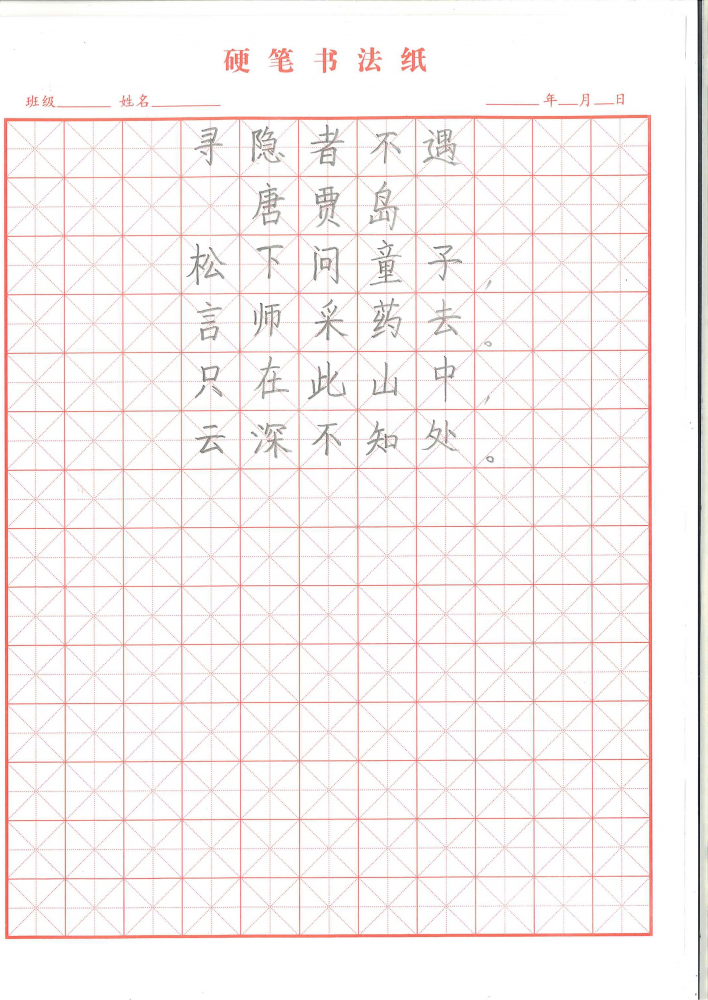 硬笔书法纸
班级______ 姓名________ ______年__月__日
寻隐者不遇
唐贾岛
松下问童子，
言师采药去。
只在此山中，
云深不知处。